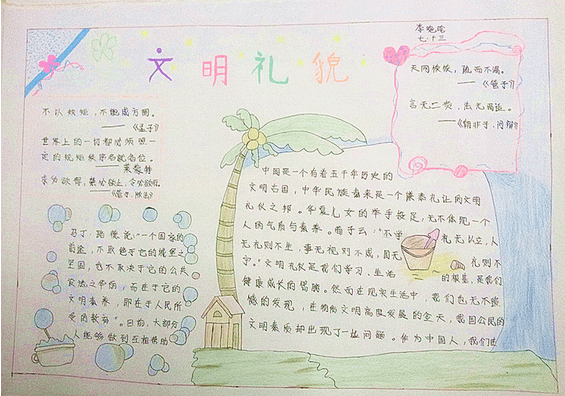 文明礼貌
李晓晗
七·十三
天网恢恢，疏而不漏。
——《老子》
言无二贵，法无两适。
——《韩非子·问辩》
不以规矩，不能成方圆。
——《孟子》
世界上的一切都必须按照一
定的规矩秩序各就各位。
——莱蒙特
求必欲得，禁必欲止，令必欲行。
——《管子·法法》
马丁·路德说：“一个国家的
前途，不取决于它的城堡之
坚固，也不取决于它的公共
设施之华丽，而在于它的
文明素养，即在于人民所
受的教育”。目前，大部分
人能够做到互相帮助
中国是一个有着五千年历史的
文明古国，中华民族素来是一个谦恭礼让的文明
礼仪之邦。华夏儿女的举手投足，无不体现一个
人的气质与素养。荀子云：“不学礼无以立，人
无礼则不生，事无礼则不成，国无礼则不
宁。”文明礼仪是我们学习、生活的根基，是我们
健康成长的臂膀。然而在现实生活中，我们也无不遗
憾的发现，在物质文明高度发展的今天，我国公民的
文明素质却出现了一些问题。作为中国人，我们进